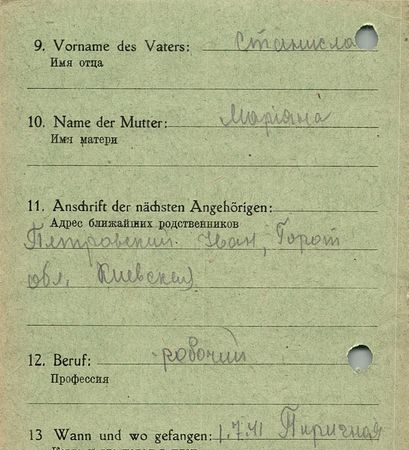 9. Vorname des Vaters: Станисла
Имя отца
10. Name der Mutter: Маріяна
Имя матери
11. Anschrift der nächsten Angehörigen:
Адрес ближайших родственников
Петровский Иван, Горот
обл. Киевская
12. Beruf: рабочий
Профессия
13 Wann und wo gefangen: 1.7.41